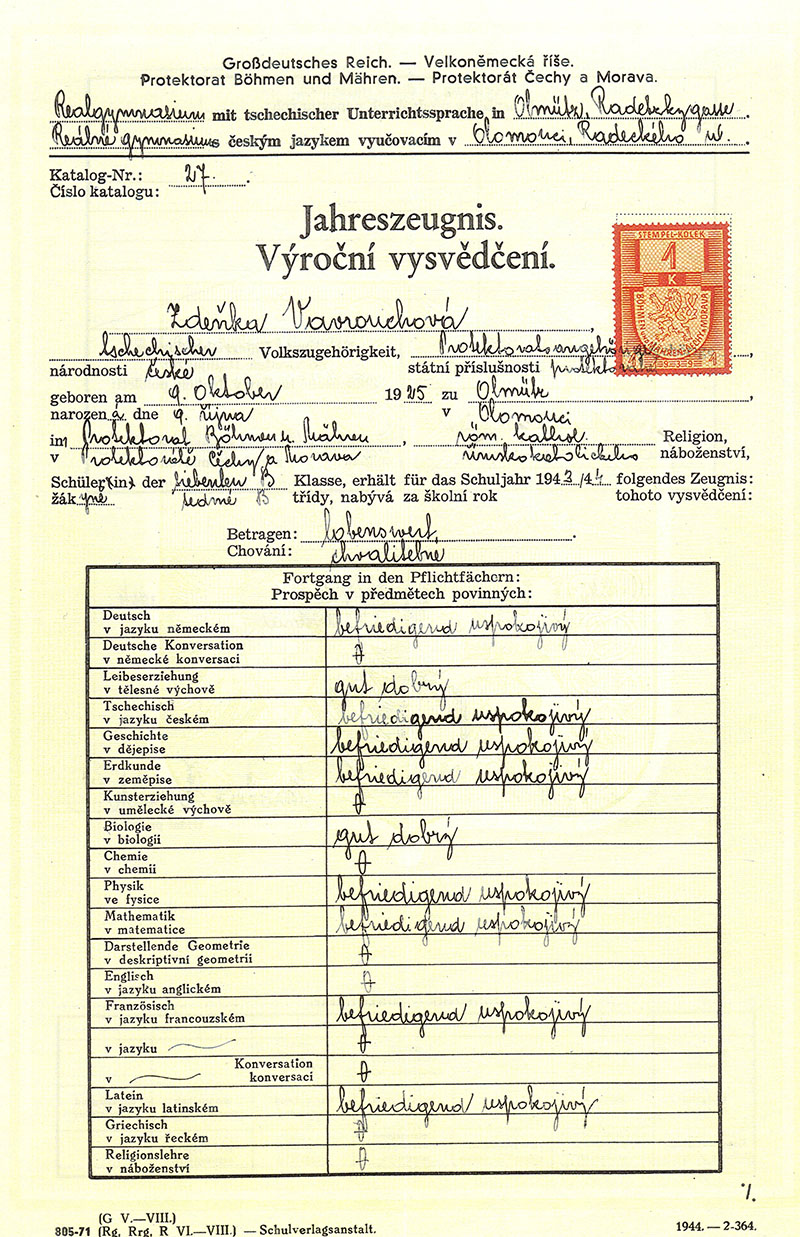 Großdeutsches Reich. — Velkoněmecká říše.
Protektorat Böhmen und Mähren. — Protektorát Čechy a Morava.
Realgymnasium mit tschechischer Unterrichtssprache in Olmütz, Radetzkygasse.
Reálné gymnasium s českým jazykem vyučovacím v Olomouci, Radeckého ul.
Katalog-Nr.: 27.
Číslo katalogu:
Jahreszeugnis.
Výroční vysvědčení.
STEMPEL-KOLEK
1
K
BÖHMEN UND MÄHREN-ČECHY A MORAVA
1939
1
Zdeňka Vavrouchová,
tschechischer Volkszugehörigkeit, Protektoratsangehörige,
národnosti české státní příslušnosti
geboren am 9. Oktober 1925 zu Olmütz,
narozená dne 9. října v Olomouci
im Protektorat Böhmen u. Mähren, röm. kathol. Religion,
v Protektorátě Čechy a Morava římskokatolického náboženství,
Schüler(in) der siebenten B Klasse, erhält für das Schuljahr 1943/44 folgendes Zeugnis:
žákyně sedmé B třídy, nabývá za školní rok tohoto vysvědčení:
Betragen: lobenswert.
Chování: chvalitebné
Fortgang in den Pflichtfächern:
Prospěch v předmětech povinných:
Deutsch
v jazyku německém befriedigend uspokojivý
Deutsche Konversation
v německé konversaci
Leibeserziehung
v tělesné výchově gut dobrý
Tschechisch
v jazyku českém befriedigend uspokojivý
Geschichte
v dějepise befriedigend uspokojivý
Erdkunde
v zeměpise befriedigend uspokojivý
Kunsterziehung
v umělecké výchově
Biologie
v biologii gut dobrý
Chemie
v chemii
Physik
ve fysice befriedigend uspokojivý
Mathematik
v matematice befriedigend uspokojivý
Darstellende Geometrie
v deskriptivní geometrii
Englisch
v jazyku anglickém
Französisch
v jazyku francouzském befriedigend uspokojivý
v jazyku
Konversation
v konversaci
Latein
v jazyku latinském befriedigend uspokojivý
Griechisch
v jazyku řeckém
Religionslehre
v náboženství
·/.
(G V.—VIII.)
805-71 (Rg, Rrg, R VI.—VIII.) — Schulverlagsanstalt. 1944. — 2-364.